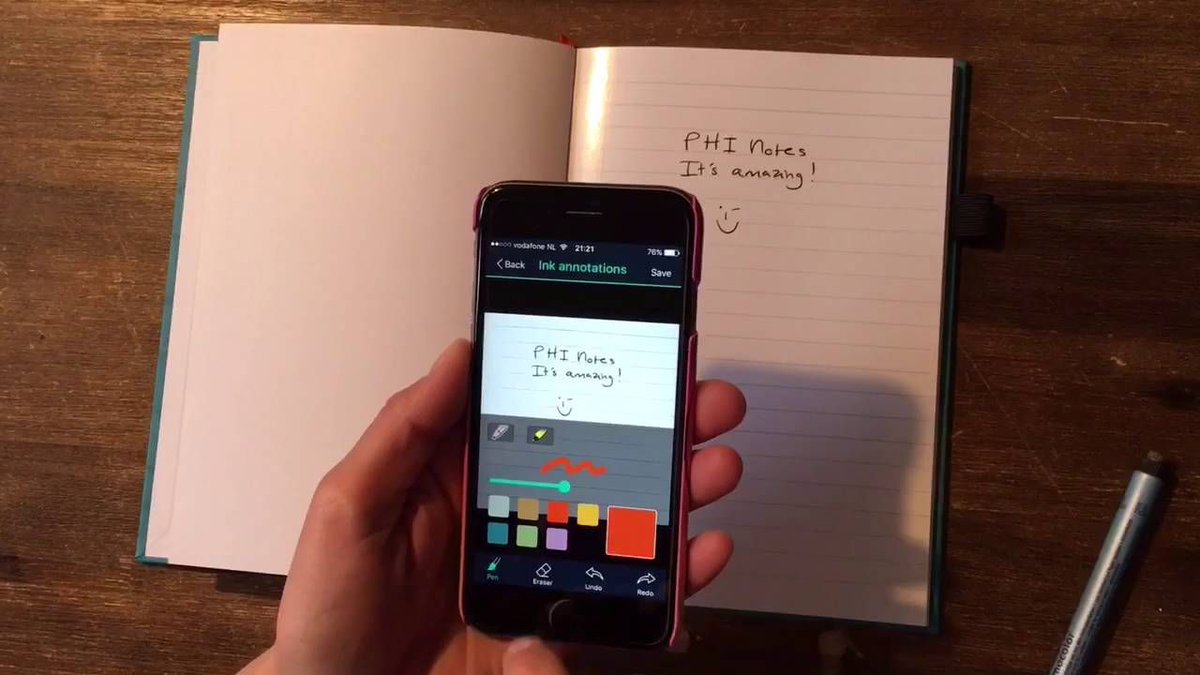 PHI Notes
It's amazing!
vodafone NL 21:21 76%
Back Ink annotations Save
PHI Notes
It's amazing!
Pen Eraser Undo Redo